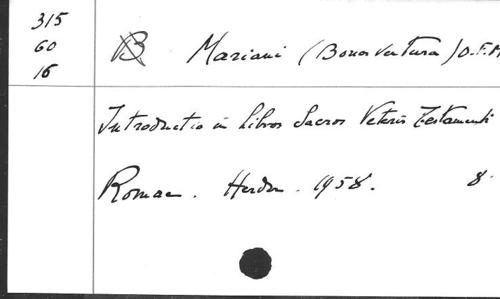 315
60
16
B Mariani (Bonaventura) O.F.M
Introductio in Libros Sacros Veteris Testamenti
Romae. Herder. 1958. 8